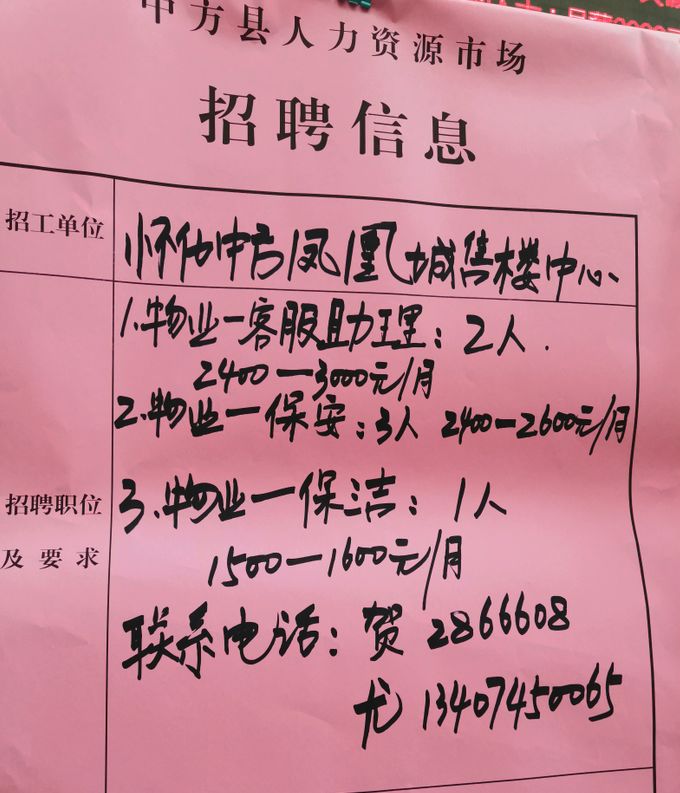 中方县人力资源市场
招聘信息
招工单位
怀化中方凤凰城售楼中心
招聘职位
及要求
1.物业一客服助理：2人.
2400—3000元/月
2.物业一保安：3人 2400—2600元/月
3.物业一保洁：1人
1500—1600元/月
联系电话：贺 2866608
尤 13407450065